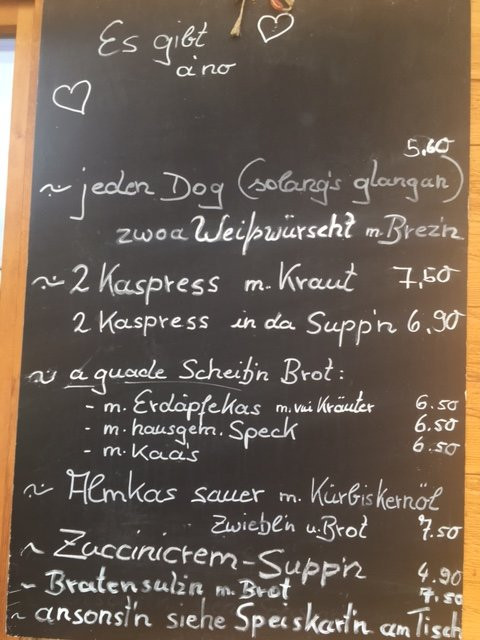 Es gibt
a'no
5,60
~ jeden Dog (solang's glangan)
zwoa Weißwürscht m. Brez'n
~ 2 Kaspress m. Kraut 7,50
2 Kaspress in da Supp'n 6,90
~ a guade Scheib'n Brot:
- m. Erdäpfekas m. vui Kräuter 6.50
- m. hausgem. Speck 6.50
- m. Kaas 6.50
~ Almkas sauer m. Kürbiskernöl
Zwiebl'n u. Brot 7.50
~ Zuccinicrem-Supp'n 4.90
~ Bratensulz'n m. Brot 7.50
~ ansonst'n siehe Speiskart'n am Tisch